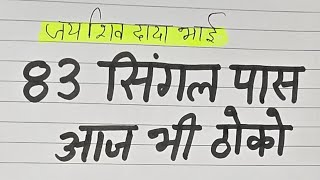 जय शिव दादा भाई
83 सिंगल पास
आज भी ठोको